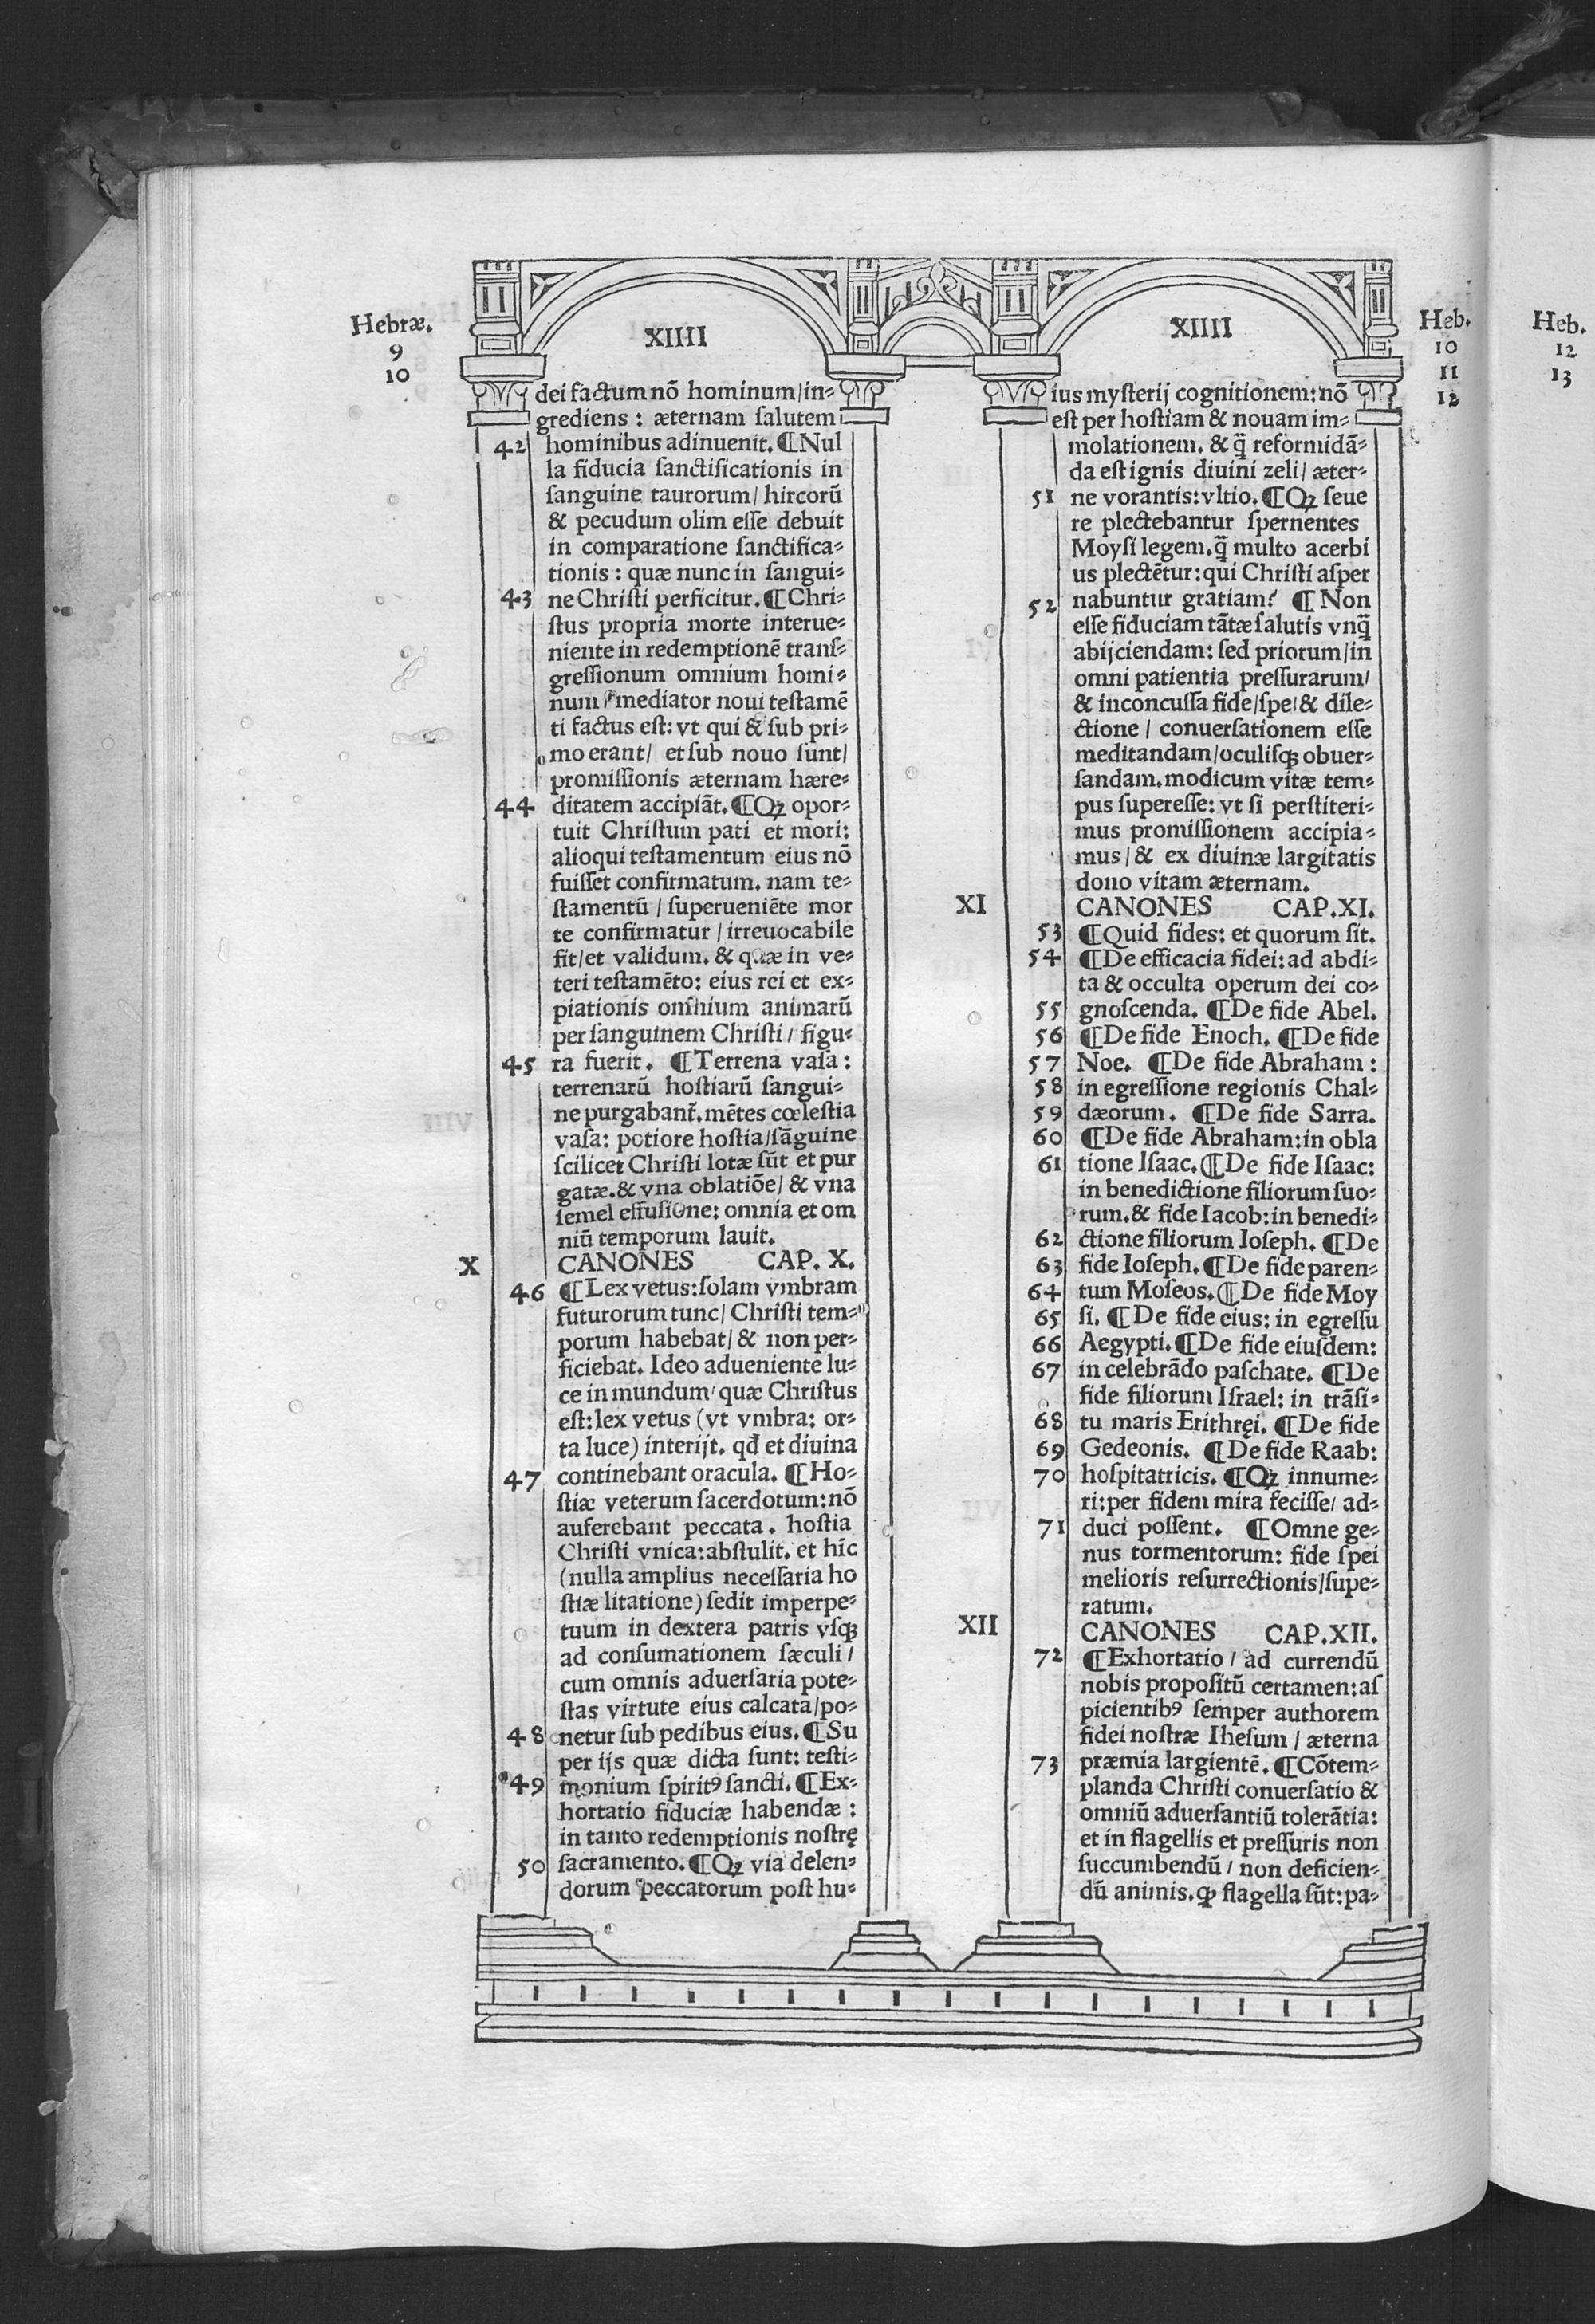 Hebræ.
9
10
XIIII
dei factum nõ hominum/in-
grediens : æternam ſalutem
42 hominibus adinuenit. ¶Nul
la fiducia ſanctificationis in
ſanguine taurorum/ hircorũ
& pecudum olim eſſe debuit
in comparatione ſanctifica-
tionis : quæ nunc in ſangui-
43 ne Chriſti perficitur. ¶Chri-
ſtus propria morte interue-
niente in redemptionẽ tranſ-
greſſionum omnium homi-
num/ mediator noui teſtamẽ
ti factus eſt: vt qui & ſub pri-
mo erant/ et ſub nouo ſunt/
promiſſionis æternam hære-
44 ditatem accipiãt. ¶Qꝫ opor-
tuit Chriſtum pati et mori:
alioqui teſtamentum eius nõ
fuiſſet confirmatum. nam te-
ſtamentũ / ſuperueniẽte mor
te confirmatur / irreuocabile
fit/et validum. & quæ in ve-
teri teſtamẽto: eius rei et ex-
piationis omnium animarũ
per ſanguinem Chriſti / figu-
45 ra fuerit. ¶Terrena vaſa :
terrenarũ hoſtiarũ ſangui-
ne purgabant̃. mẽtes cœleſtia
vaſa: potiore hoſtia/ſãguine
ſcilicet Chriſti lotæ sũt et pur
gatæ. & vna oblatiõe/ & vna
ſemel effuſione: omnia et om
niũ temporum lauit.
X CANONES CAP. X.
46 ¶Lex vetus:ſolam vmbram
futurorum tunc/ Chriſti tem-
porum habebat/ & non per-
ficiebat. Ideo adueniente lu-
ce in mundum/ quæ Chriſtus
eſt: lex vetus (vt vmbra: or-
ta luce) interijt. qđ et diuina
47 continebant oracula. ¶Ho-
ſtiæ veterum ſacerdotum:nõ
auferebant peccata. hoſtia
Chriſti vnica:abſtulit. et hĩc
(nulla amplius neceſſaria ho
ſtiæ litatione) ſedit imperpe-
tuum in dextera patris vſqꝫ
ad conſumationem ſæculi /
cum omnis aduerſaria pote-
ſtas virtute eius calcata/po-
48 netur ſub pedibus eius. ¶Su
per ijs quæ dicta ſunt: teſti-
49 monium ſpiritꝰ ſancti. ¶Ex-
hortatio fiduciæ habendæ :
in tanto redemptionis noſtrę
50 ſacramento. ¶Qꝫ via delen-
dorum peccatorum poſt hu-
Heb.
10
11
12
XIIII
ius myſterij cognitionem: nõ
eſt per hoſtiam & nouam im-
molationem. & q̃ reformidã-
da eſt ignis diuini zeli/ æter-
51 ne vorantis: vltio. ¶Qꝫ ſeue
re plectebantur ſpernentes
Moyſi legem. q̃ multo acerbi
us plectẽtur: qui Chriſti aſper
52 nabuntur gratiam? ¶Non
eſſe fiduciam tãtæ ſalutis vnq̃
abijciendam: ſed priorum/in
omni patientia preſſurarum/
& inconcuſſa fide/ſpe/& dile-
ctione / conuerſationem eſſe
meditandam/oculiſqꝫ obuer-
ſandam. modicum vitæ tem-
pus ſupereſſe: vt ſi perſtiteri-
mus promiſſionem accipia-
mus/ & ex diuinæ largitatis
dono vitam æternam.
XI CANONES CAP.XI.
53 ¶Quid fides: et quorum ſit.
54 ¶De efficacia fidei: ad abdi-
ta & occulta operum dei co-
55 gnoſcenda. ¶De fide Abel.
56 ¶De fide Enoch. ¶De fide
57 Noe. ¶De fide Abraham :
58 in egreſſione regionis Chal-
59 dæorum. ¶De fide Sarra.
60 ¶De fide Abraham:in obla
61 tione Iſaac. ¶De fide Iſaac:
in benedictione filiorum ſuo-
rum. & fide Iacob:in benedi-
62 ctione filiorum Ioſeph. ¶De
63 fide Ioſeph. ¶De fide paren-
64 tum Moſeos. ¶De fide Moy
65 ſi. ¶De fide eius: in egreſſu
66 Aegypti. ¶De fide eiuſdem:
67 in celebrãdo paſchate. ¶De
fide filiorum Iſrael: in trãſi-
68 tu maris Erithręi. ¶De fide
69 Gedeonis. ¶De fide Raab:
70 hoſpitatricis. ¶Qꝫ innume-
ri:per fidem mira feciſſe/ ad-
71 duci poſſent. ¶Omne ge-
nus tormentorum: fide ſpei
melioris reſurrectionis/ſupe-
ratum.
XII CANONES CAP.XII.
72 ¶Exhortatio / ad currendũ
nobis propoſitũ certamen: aſ
picientibꝰ ſemper authorem
fidei noſtræ Iheſum / æterna
73 præmia largientẽ. ¶Cõtem-
planda Chriſti conuerſatio &
omniũ aduerſantiũ tolerãtia:
et in flagellis et preſſuris non
ſuccumbendũ / non deficien-
dũ animis. ꝙ flagella sũt: pa-
Heb.
12
13